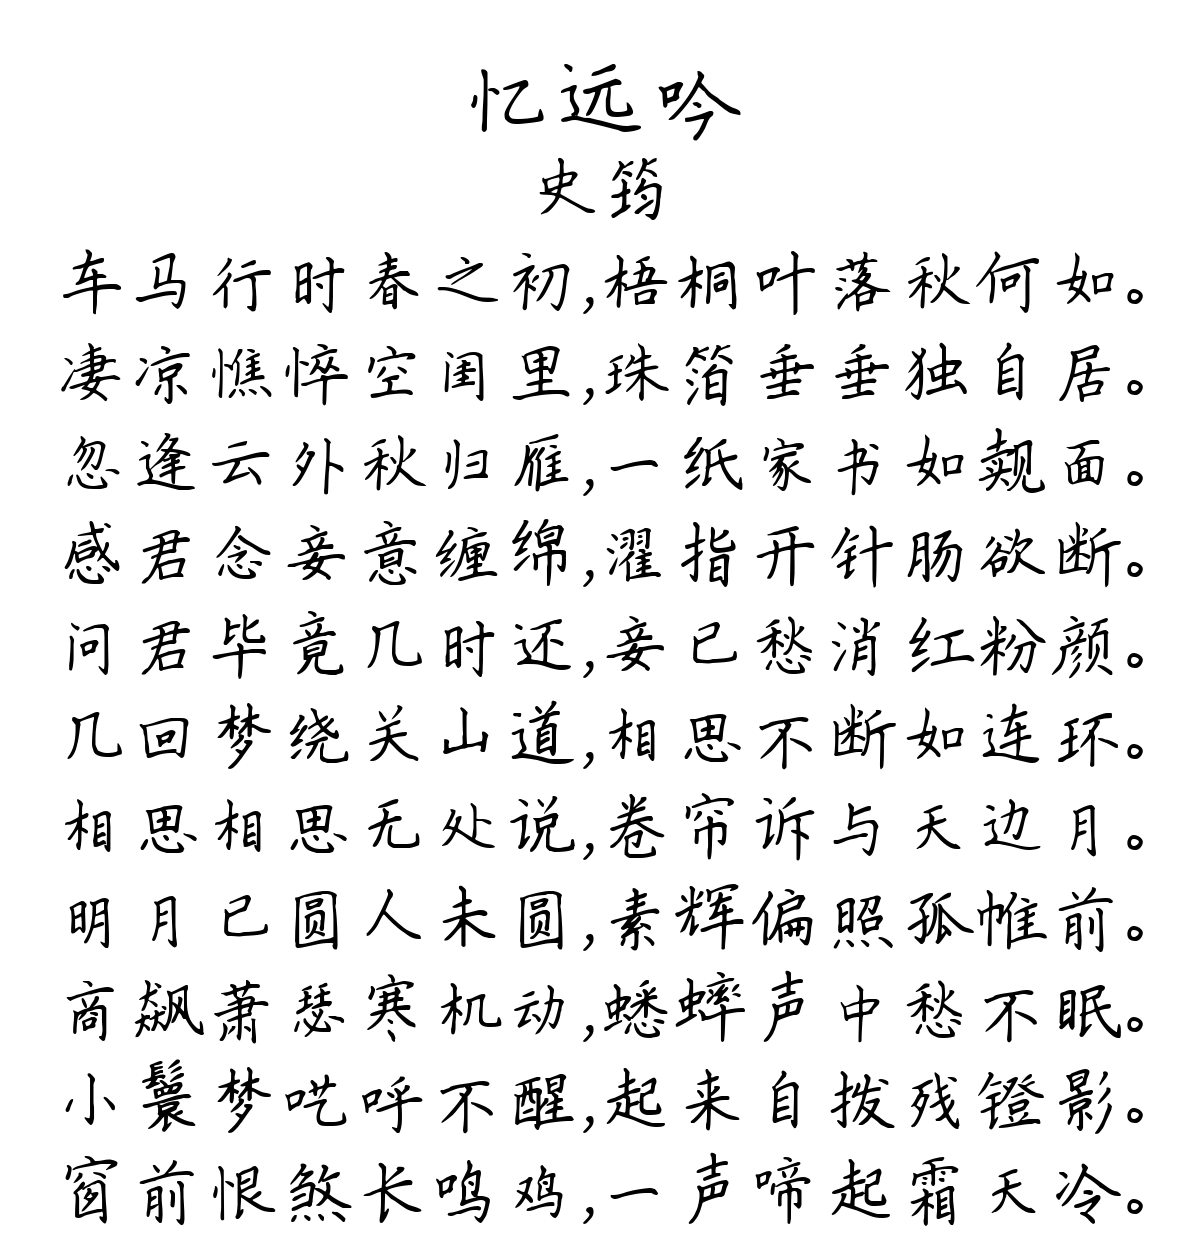 忆远吟
史筠
车马行时春之初,梧桐叶落秋何如。
凄凉憔悴空闺里,珠箔垂垂独自居。
忽逢云外秋归雁,一纸家书如觌面。
感君念妾意缠绵,濯指开针肠欲断。
问君毕竟几时还,妾已愁消红粉颜。
几回梦绕关山道,相思不断如连环。
相思相思无处说,卷帘诉与天边月。
明月已圆人未圆,素辉偏照孤帷前。
商飙萧瑟寒机动,蟋蟀声中愁不眠。
小鬟梦呓呼不醒,起来自拨残镫影。
窗前恨煞长鸣鸡,一声啼起霜天冷。